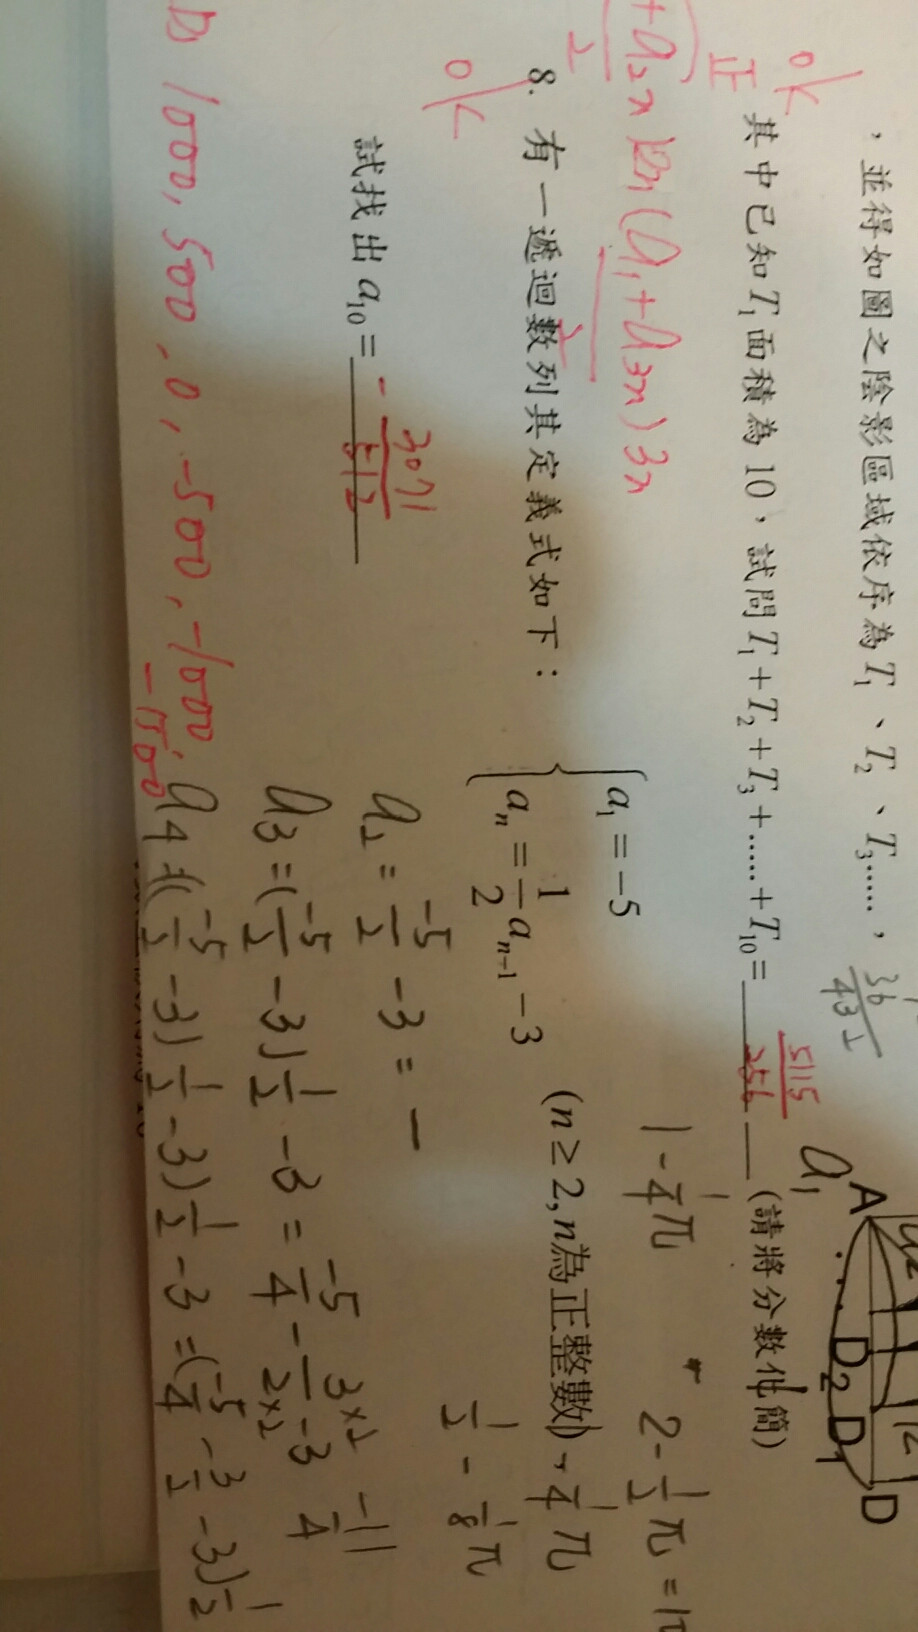 ，並得如圖之陰影區域依序為T₁、T₂、T₃……，
36
431
ok
正
其中已知T₁面積為10，試問T₁+T₂+T₃+……+T₁₀=
5115
256
(請將分數化簡)
a₁
A
D₂ D₁ D
+a₂n)2n (a₁+a₃n)3n
2
2
1-1/4π
2-1/2π =
ok
8. 有一遞迴數列其定義式如下：
a₁=-5
aₙ=1/2aₙ₋₁-3
(n≥2,n為正整數)，
1/4π
1/2-1/8π
試找出a₁₀=
-3071/512
a₂=-5/2-3=-
a₃=(-5/2-3)1/2-3=-5/4-3×2/2×2-3 -11/4
a₄=((-5/2-3)1/2-3)1/2-3=(-5/4-3/2-3)1/2
1000, 500, 0, -500, -1000,
-1500